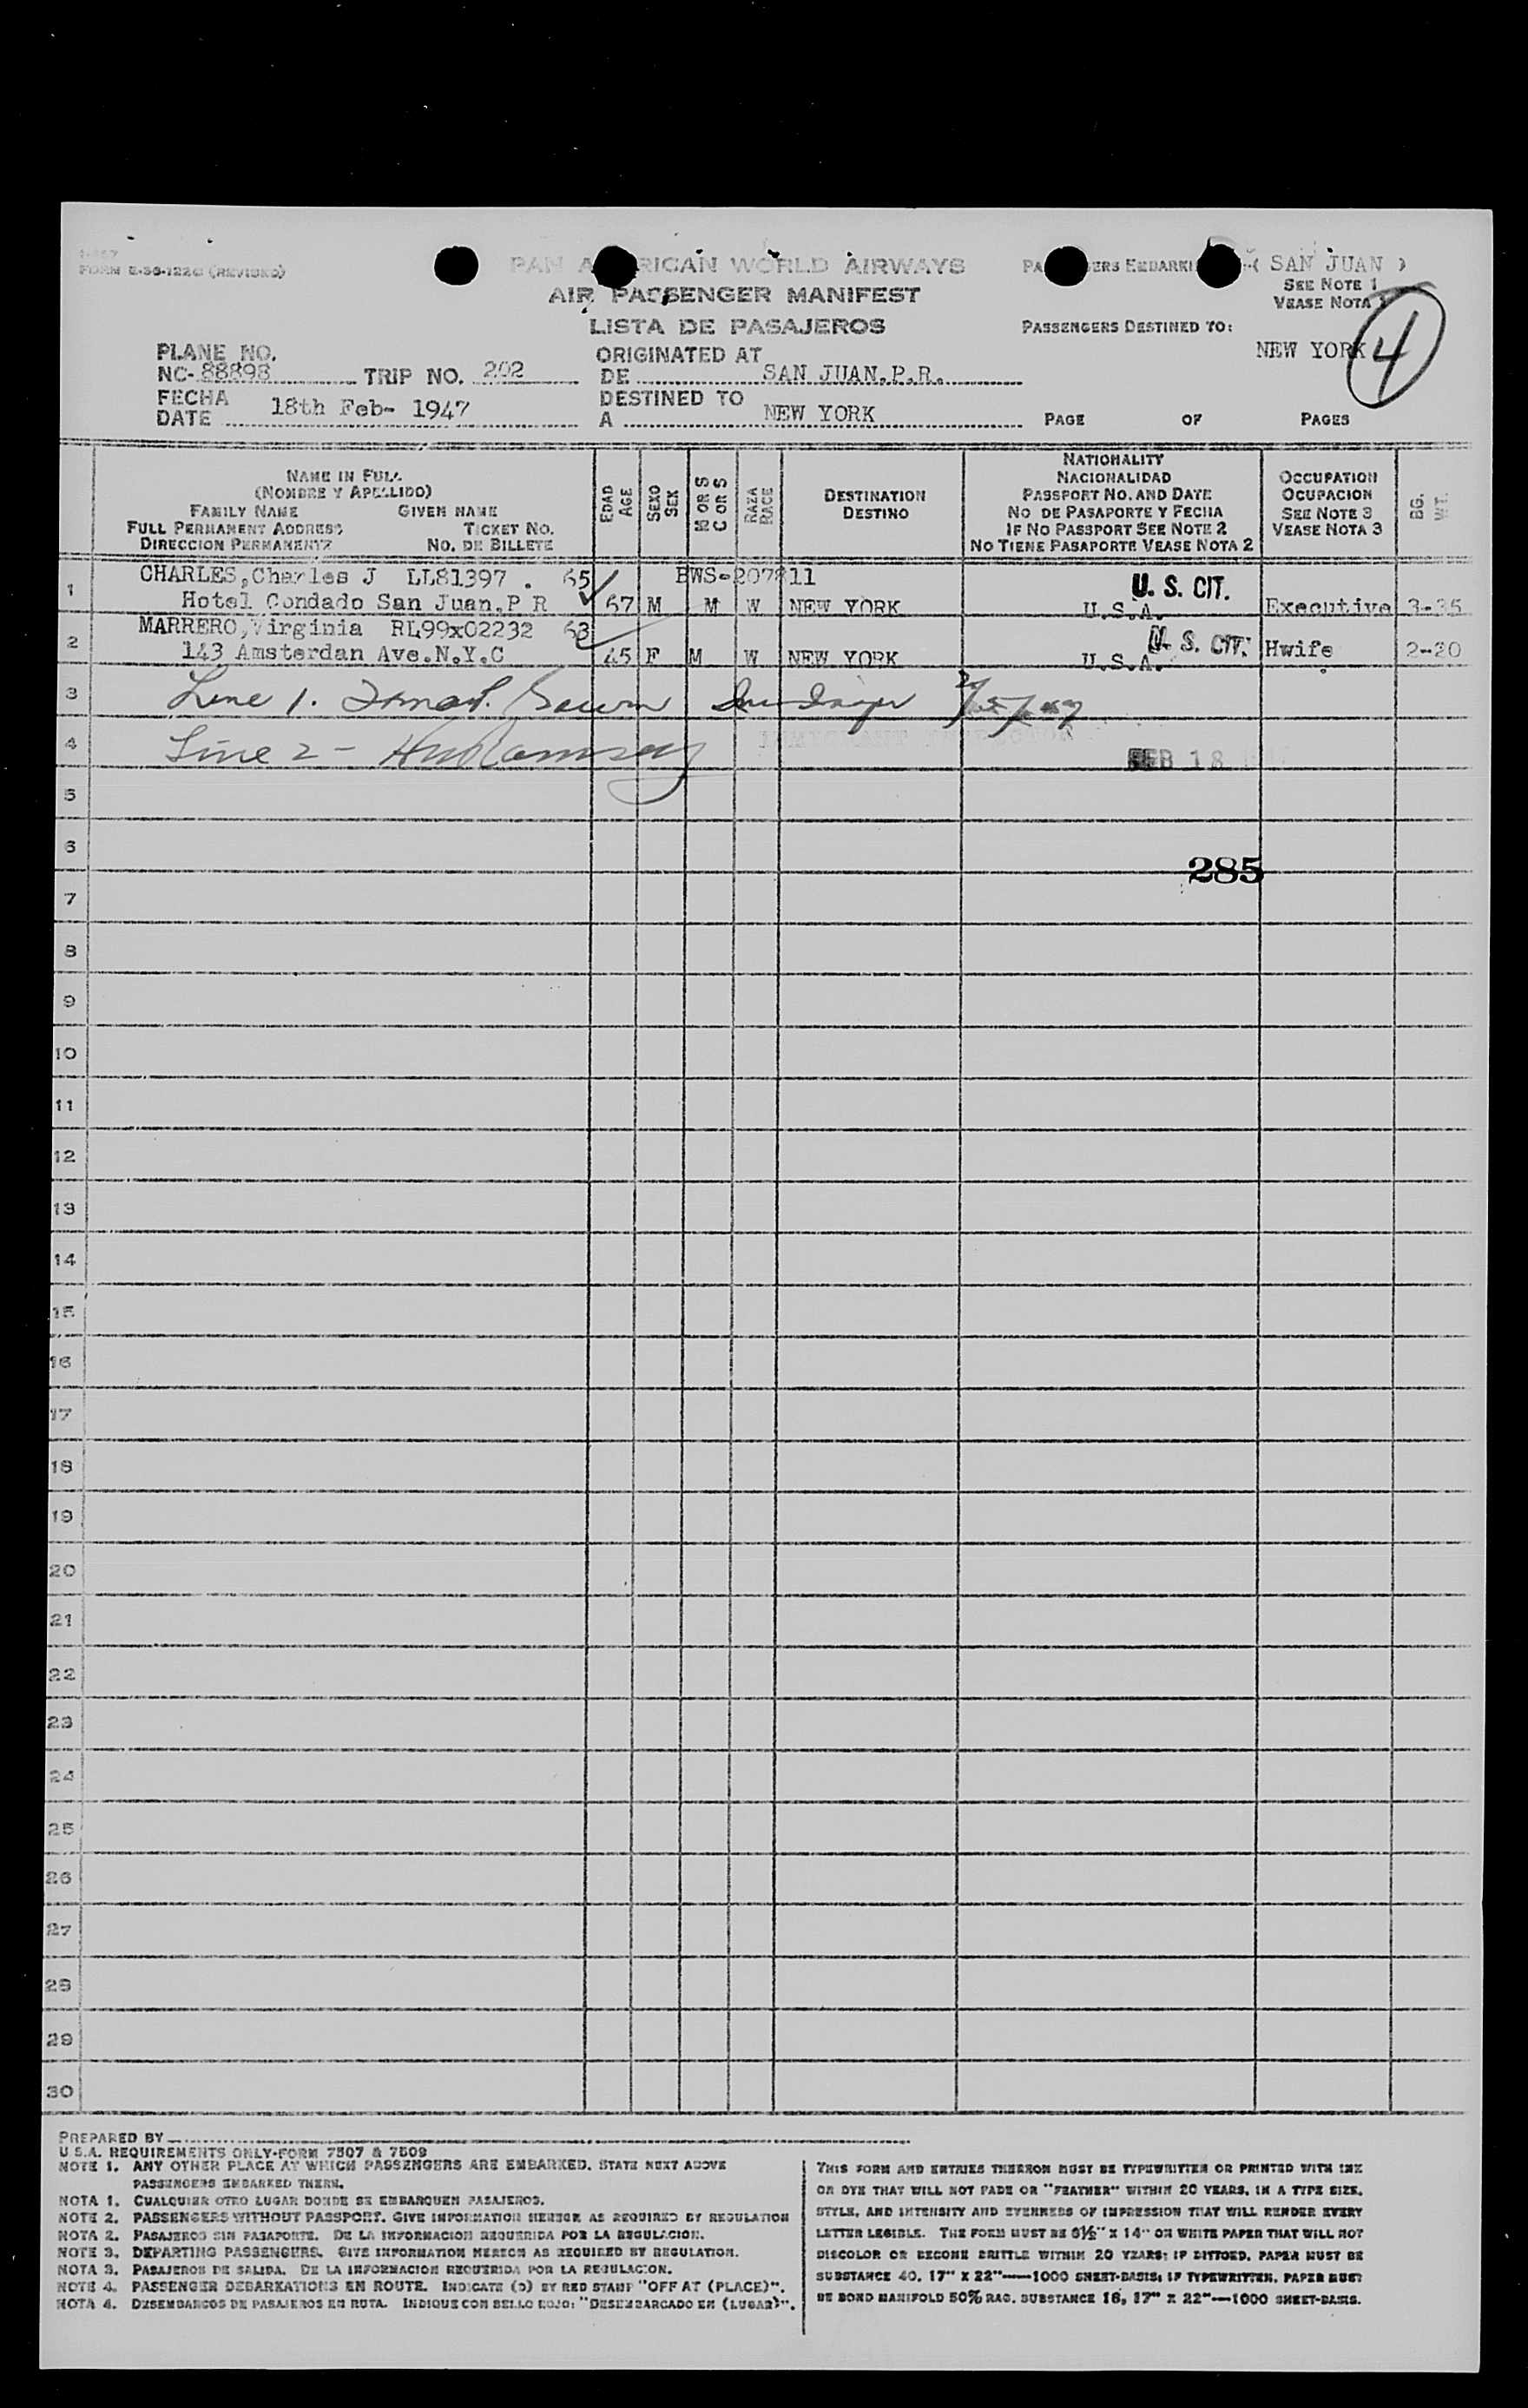 FORM E-56-122G (REVISED)
PAN AMERICAN WORLD AIRWAYS
AIR PASSENGER MANIFEST
LISTA DE PASAJEROS
( SAN JUAN )
SEE NOTE 1
VEASE NOTA 1
PASSENGERS DESTINED TO:
NEW YORK
4
PLANE NO.
NC-88898 TRIP NO. 202
FECHA
DATE 18th Feb- 1947
ORIGINATED AT
DE SAN JUAN.P.R.
DESTINED TO
A NEW YORK
PAGE OF PAGES
NAME IN FULL
(NOMBRE Y APELLIDO)
FAMILY NAME GIVEN NAME
FULL PERMANENT ADDRESS TICKET NO.
DIRECCION PERMANENTE NO. DE BILLETE
EDAD
AGE
SEXO
SEX
M OR S
C OR S
RAZA
RACE
DESTINATION
DESTINO
NATIONALITY
NACIONALIDAD
PASSPORT NO. AND DATE
NO DE PASAPORTE Y FECHA
IF NO PASSPORT SEE NOTE 2
NO TIENE PASAPORTE VEASE NOTA 2
OCCUPATION
OCUPACION
SEE NOTE 3
VEASE NOTA 3
BG.
WT.
1 CHARLES,Charles J LL81397 . 65 BWS-207811 U. S. CIT.
Hotel Condado San Juan,P R 67 M M W NEW YORK U.S.A. Executive 3-35
2 MARRERO,Virginia RL99x02232 63 U. S. CIT.
143 Amsterdan Ave.N.Y.C 45 F M W NEW YORK U.S.A. Hwife 2-20
3 Line 1.
4 Line 2 - Ramsay
FEB 18
5
6
285
7
8
9
10
11
12
13
14
15
16
17
18
19
20
21
22
23
24
25
26
27
28
29
30
PREPARED BY
U.S.A. REQUIREMENTS ONLY-FORM 7507 & 7509
NOTE 1. ANY OTHER PLACE AT WHICH PASSENGERS ARE EMBARKED, STATE NEXT ABOVE
PASSENGERS EMBARKED THERE.
NOTA 1. CUALQUIER OTRO LUGAR DONDE SE EMBARQUEN PASAJEROS.
NOTE 2. PASSENGERS WITHOUT PASSPORT. GIVE INFORMATION HEREON AS REQUIRED BY REGULATION
NOTA 2. PASAJEROS SIN PASAPORTE. DE LA INFORMACION REQUERIDA POR LA REGULACION.
NOTE 3. DEPARTING PASSENGERS. GIVE INFORMATION HEREON AS REQUIRED BY REGULATION.
NOTA 3. PASAJEROS DE SALIDA. DE LA INFORMACION REQUERIDA POR LA REGULACION.
NOTE 4. PASSENGER DEBARKATIONS EN ROUTE. INDICATE (D) BY RED STAMP "OFF AT (PLACE)".
NOTA 4. DESEMBARCOS DE PASAJEROS EN RUTA. INDIQUE CON SELLO ROJO: "DESEMBARCADO EN (LUGAR)".
THIS FORM AND ENTRIES THEREON MUST BE TYPEWRITTEN OR PRINTED WITH INK
OR DYE THAT WILL NOT FADE OR "FEATHER" WITHIN 20 YEARS, IN A TYPE SIZE,
STYLE, AND INTENSITY AND EVENNESS OF IMPRESSION THAT WILL RENDER EVERY
LETTER LEGIBLE. THE FORM MUST BE 8½" X 14" ON WHITE PAPER THAT WILL NOT
DISCOLOR OR BECOME BRITTLE WITHIN 20 YEARS; IF DITTOED, PAPER MUST BE
SUBSTANCE 40, 17" X 22"—1000 SHEET-BASIS; IF TYPEWRITTEN, PAPER MUST
BE BOND MANIFOLD 50% RAG, SUBSTANCE 16, 17" X 22"—1000 SHEET-BASIS.